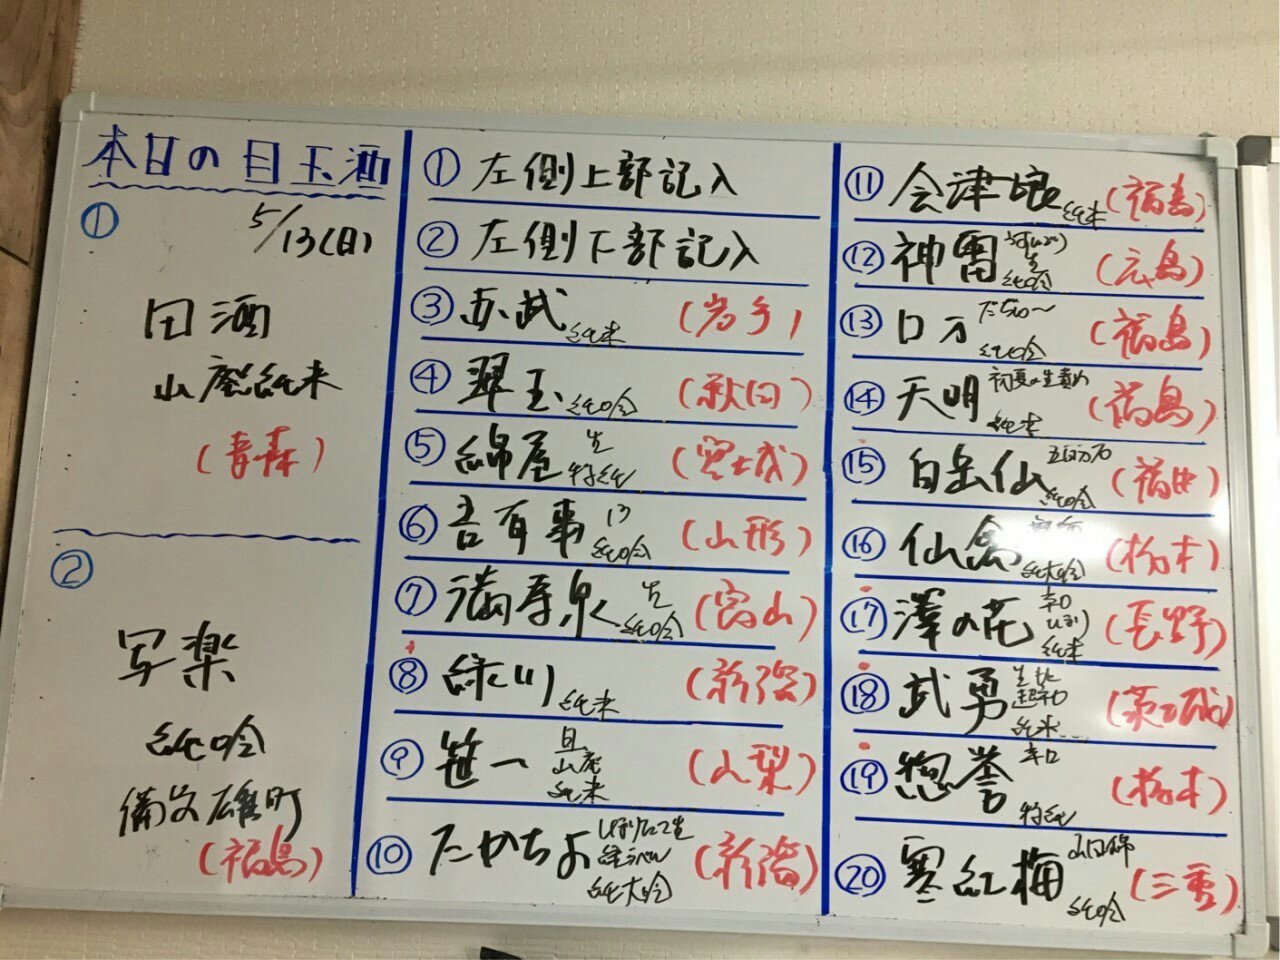 本日の目玉酒
①
5/13(日)
田酒
山廃純米
(青森)
②
写楽
純吟
備前雄町
(福島)
① 左側上部記入
② 左側下部記入
③ 赤武 純米 (岩手)
④ 翠玉 純吟 (秋田)
⑤ 綿屋 生 特純 (宮城)
⑥ 吾有事 純吟 (山形)
⑦ 満寿泉 生 純吟 (富山)
⑧ 緑川 純米 (新潟)
⑨ 笹一 旦 山廃 純米 (山梨)
⑩ たかちよ 純大吟 (新潟)
⑪ 会津娘 純米 (福島)
⑫ 神雷 生 純吟 (広島)
⑬ ロ万 だぢゅー 純吟 (福島)
⑭ 天明 初夏の生 純米 (福島)
⑮ 白岳仙 五百万石 純吟 (福井)
⑯ 仙禽 純大吟 (栃木)
⑰ 澤の花 辛口 純米 (長野)
⑱ 武勇 生酛 超辛口 純米 (茨城)
⑲ 惣誉 辛口 特純 (栃木)
⑳ 寒紅梅 山田錦 純吟 (三重)